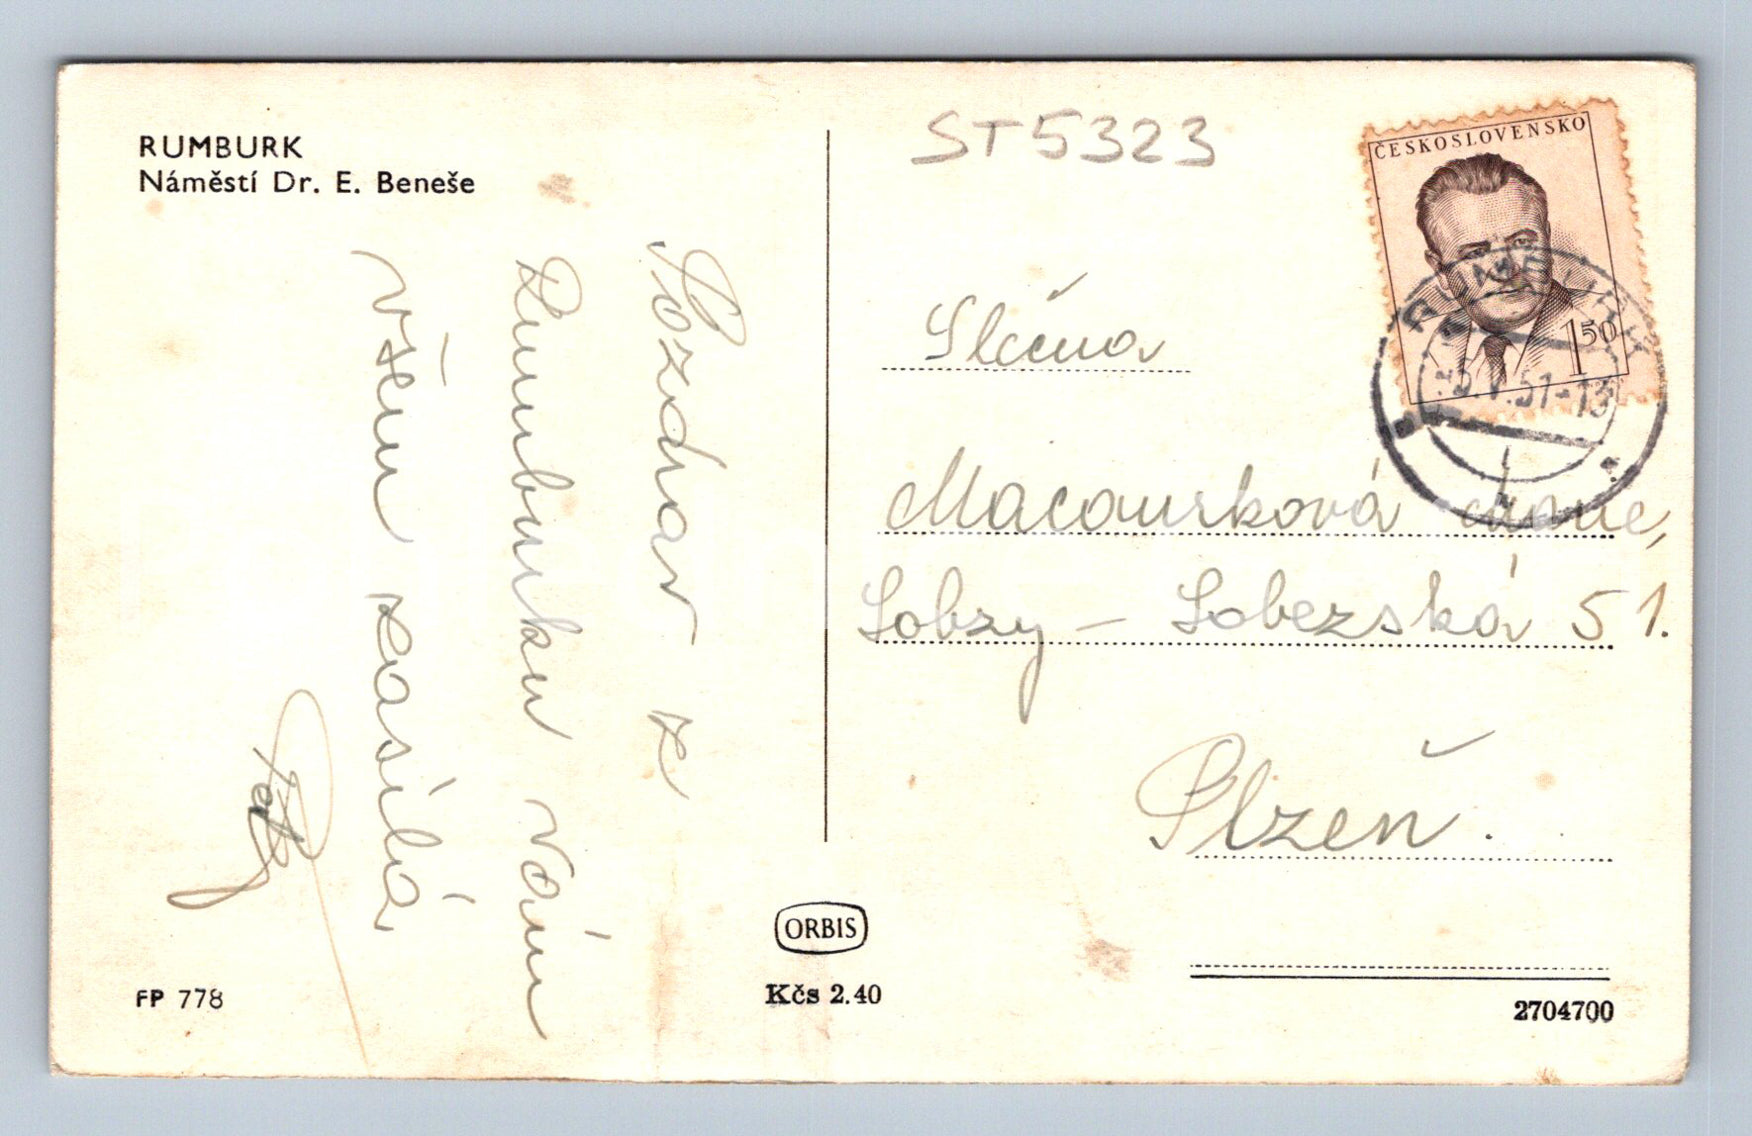 RUMBURK
Náměstí Dr. E. Beneše
Pozdrav z
Rumburku Vám
všem zasílá
ST5323
ČESKOSLOVENSKO
1 50
Slečna
Macourková
Lobzy – Lobezská 51.
Plzeň.
ORBIS
Kčs 2.40
FP 778
2704700